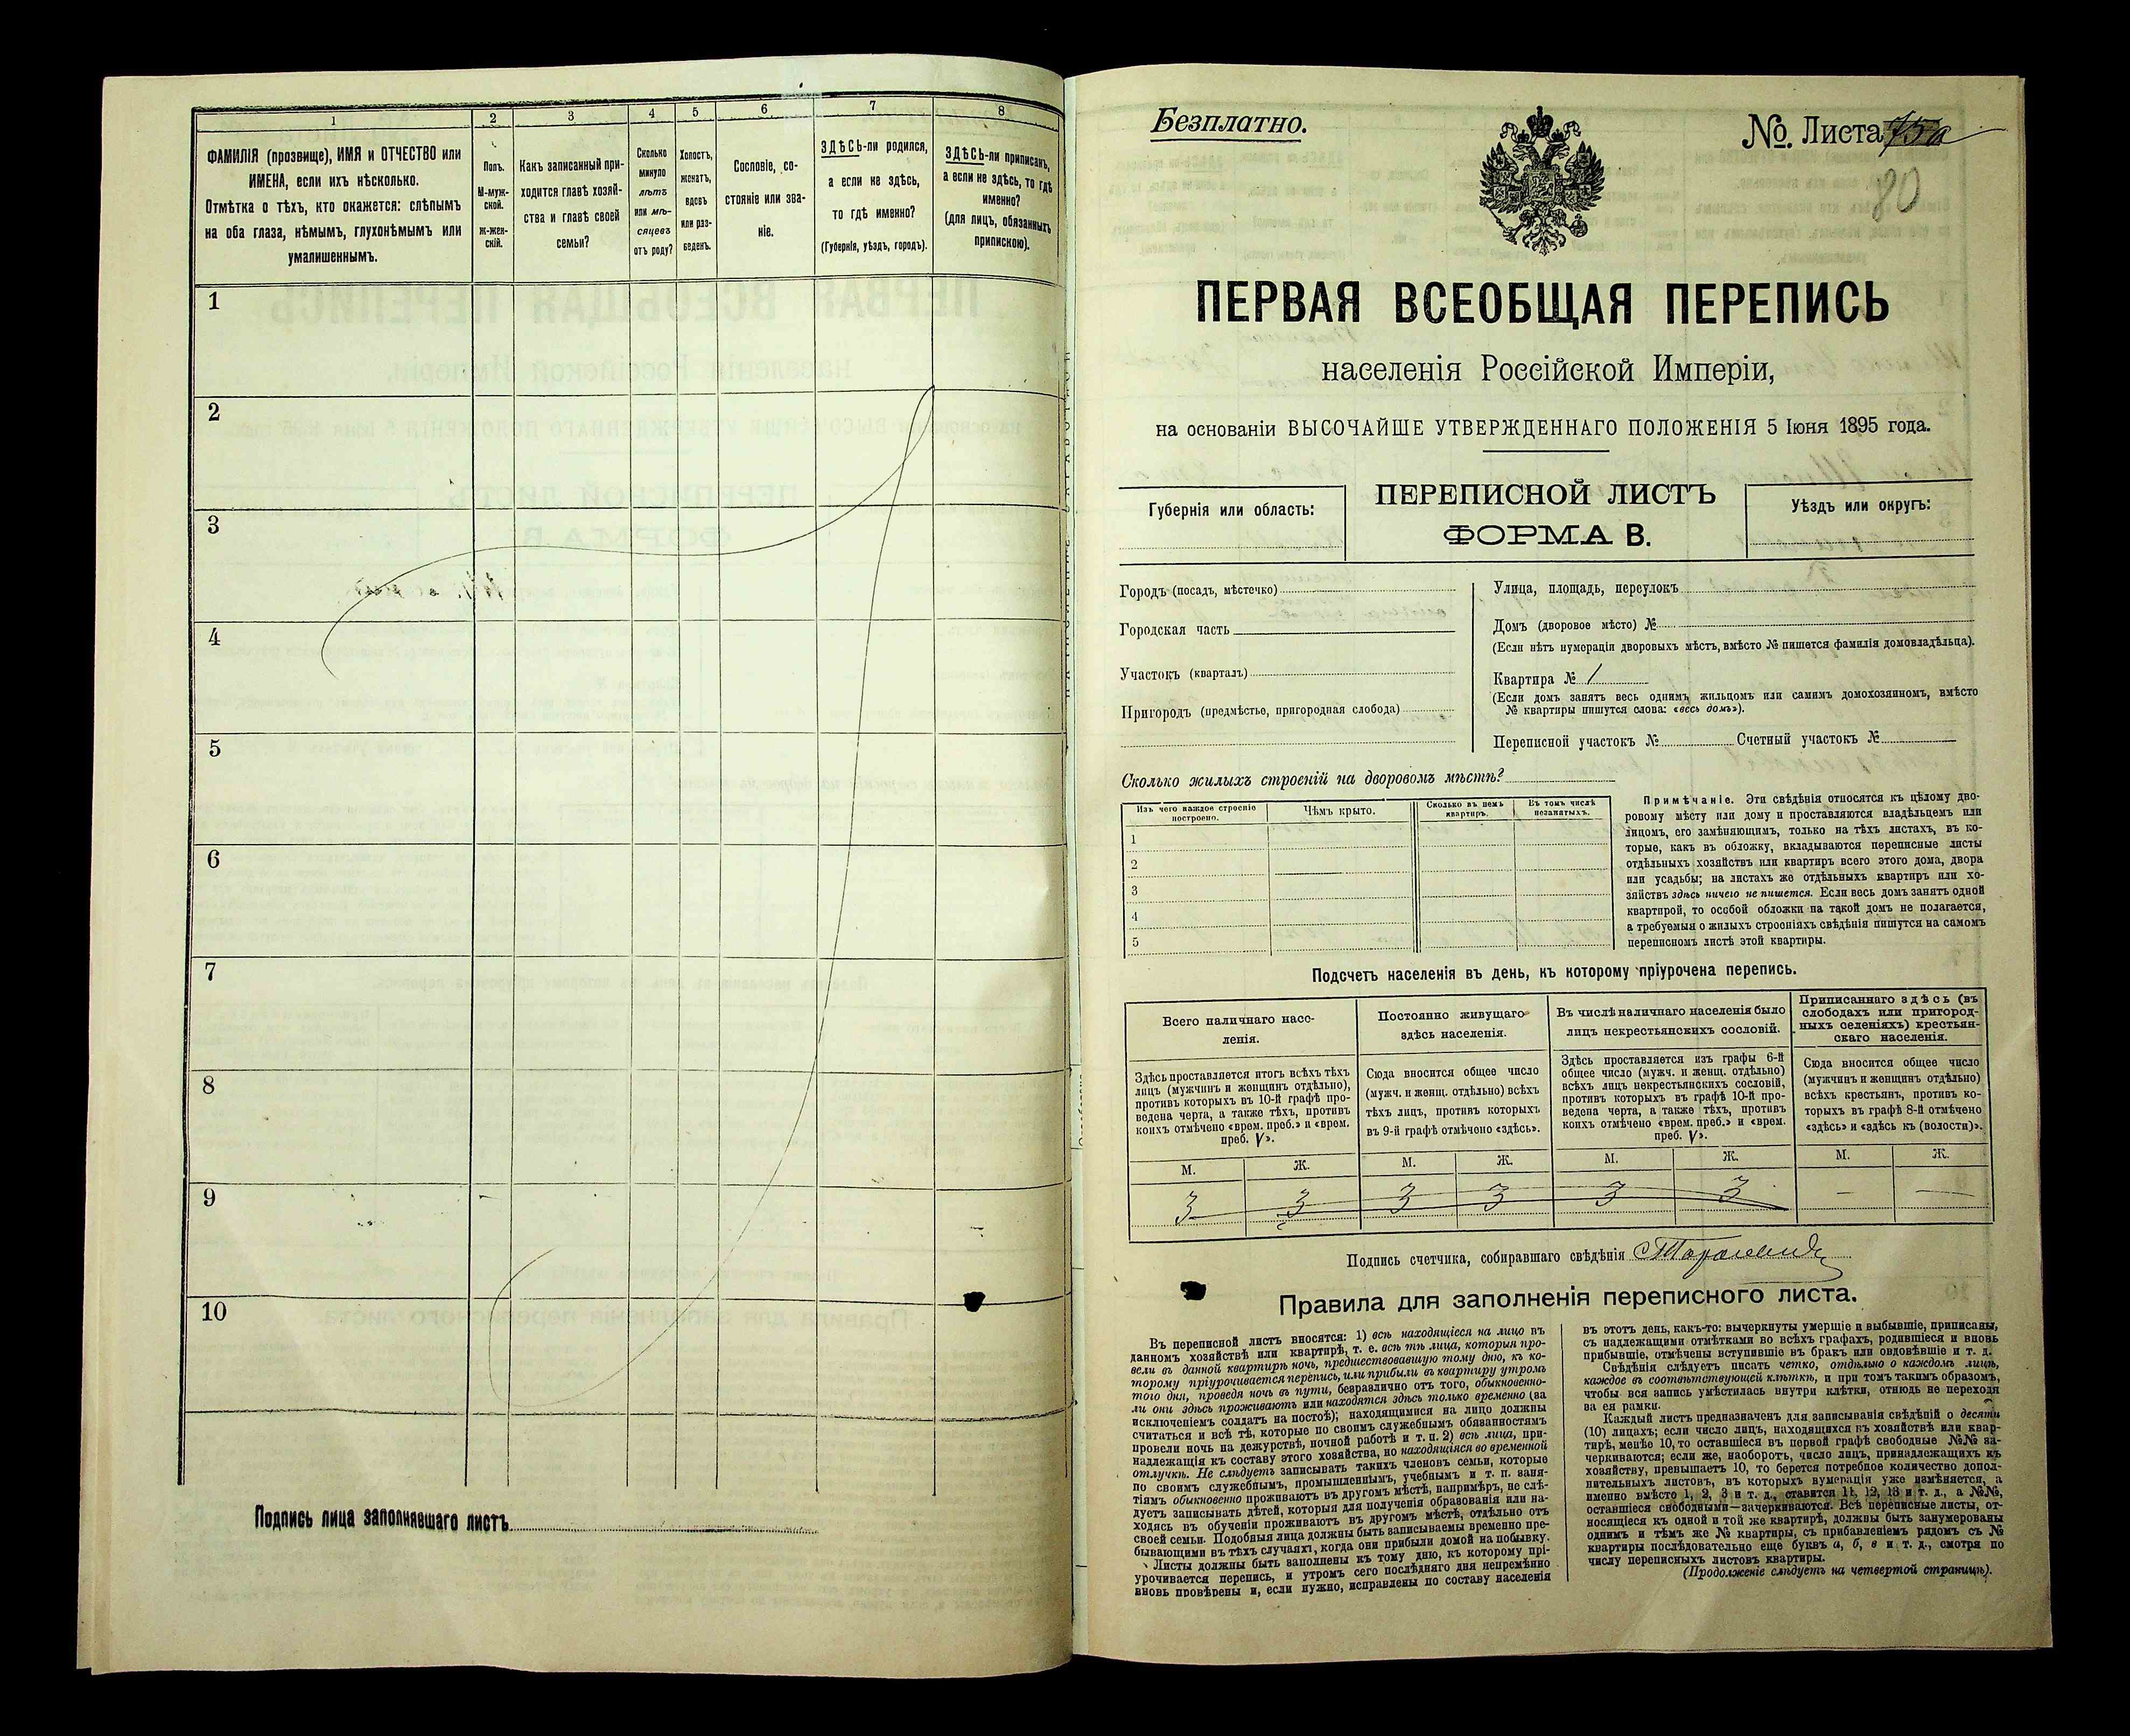 1
2
3
4
5
6
7
8
ФАМИЛІЯ (прозвище), ИМЯ и ОТЧЕСТВО или
ИМЕНА, если ихъ нѣсколько.
Отмѣтка о тѣхъ, кто окажется: слѣпымъ
на оба глаза, нѣмымъ, глухонѣмымъ или
умалишеннымъ.
Полъ.
М-муж-
ской.
Ж-жен-
скій.
Какъ записанный при-
ходится главѣ хозяй-
ства и главѣ своей
семьи?
Сколько
минуло
лѣтъ
или мѣ-
сяцевъ
отъ роду?
Холостъ,
женатъ,
вдовъ
или раз-
веденъ.
Сословіе, со-
стояніе или зва-
ніе.
ЗДѢСЬ-ли родился,
а если не здѣсь,
то гдѣ именно?
(Губернія, уѣздъ, городъ).
ЗДѢСЬ-ли приписанъ,
а если не здѣсь, то гдѣ
именно?
(для лицъ, обязанныхъ
припискою).
1
2
3
4
5
6
7
8
9
10
Подпись лица заполнявшаго листъ
Безплатно.
№. Листа 75а
80
ПЕРВАЯ ВСЕОБЩАЯ ПЕРЕПИСЬ
населенія Россійской Имперіи,
на основаніи ВЫСОЧАЙШЕ УТВЕРЖДЕННАГО ПОЛОЖЕНІЯ 5 Іюня 1895 года.
Губернія или область:
ПЕРЕПИСНОЙ ЛИСТЪ
ФОРМА В.
Уѣздъ или округъ:
Городъ (посадъ, мѣстечко)
Городская часть
Участокъ (кварталъ)
Пригородъ (предмѣстье, пригородная слобода)
Улица, площадь, переулокъ
Домъ (дворовое мѣсто) №
(Если нѣтъ нумераціи дворовыхъ мѣстъ, вмѣсто № пишется фамилія домовладѣльца).
Квартира № 1
(Если домъ занятъ весь однимъ жильцомъ или самимъ домохозяиномъ, вмѣсто
№ квартиры пишутся слова: «весь домъ»).
Переписной участокъ № Счетный участокъ №
Сколько жилыхъ строеній на дворовомъ мѣстѣ?
Изъ чего каждое строеніе
построено.
Чѣмъ крыто.
Сколько въ немъ
квартиръ.
Въ томъ числѣ
незанятыхъ.
1
2
3
4
5
Примѣчаніе. Эти свѣдѣнія относятся къ цѣлому дво-
ровому мѣсту или дому и проставляются владѣльцемъ или
лицомъ, его замѣняющимъ, только на тѣхъ листахъ, въ ко-
торые, какъ въ обложку, вкладываются переписные листы
отдѣльныхъ хозяйствъ или квартиръ всего этого дома, двора
или усадьбы; на листахъ же отдѣльныхъ квартиръ или хо-
зяйствъ здѣсь ничего не пишется. Если весь домъ занятъ одной
квартирой, то особой обложки на такой домъ не полагается,
а требуемыя о жилыхъ строеніяхъ свѣдѣнія пишутся на самомъ
переписномъ листѣ этой квартиры.
Подсчетъ населенія въ день, къ которому пріурочена перепись.
Всего наличнаго насе-
ленія.
Постоянно живущаго
здѣсь населенія.
Въ числѣ наличнаго населенія было
лицъ некрестьянскихъ сословій.
Приписаннаго здѣсь (въ
слободахъ или пригород-
ныхъ селеніяхъ) крестьян-
скаго населенія.
Здѣсь проставляется итогъ всѣхъ тѣхъ
лицъ (мужчинъ и женщинъ отдѣльно),
противъ которыхъ въ 10-й графѣ про-
ведена черта, а также тѣхъ, противъ
коихъ отмѣчено «врем. преб.» и «врем.
преб. V».
Сюда вносится общее число
(мужч. и женщ. отдѣльно) всѣхъ
тѣхъ лицъ, противъ которыхъ
въ 9-й графѣ отмѣчено «здѣсь».
Здѣсь проставляется изъ графы 6-й
общее число (мужч. и женщ. отдѣльно)
всѣхъ лицъ некрестьянскихъ сословій,
противъ которыхъ въ графѣ 10-й про-
ведена черта, а также тѣхъ, противъ
коихъ отмѣчено «врем. преб.» и «врем.
преб. V».
Сюда вносится общее число
(мужчинъ и женщинъ отдѣльно)
всѣхъ крестьянъ, противъ ко-
торыхъ въ графѣ 8-й отмѣчено
«здѣсь» и «здѣсь къ (волости)».
М. Ж. М. Ж. М. Ж. М. Ж.
3 3 3 3 3 3 — —
Подпись счетчика, собиравшаго свѣдѣнія
Правила для заполненія переписного листа.
Въ переписной листъ вносятся: 1) всѣ находящіеся на лицо въ
данномъ хозяйствѣ или квартирѣ, т. е. всѣ тѣ лица, которыя про-
вели въ данной квартирѣ ночь, предшествовавшую тому дню, къ ко-
торому пріурочивается перепись, или прибыли въ квартиру утромъ
того дня, проведя ночь въ пути, безразлично отъ того, обыкновенно-
ли они здѣсь проживаютъ или находятся здѣсь только временно (за
исключеніемъ солдатъ на постоѣ); находящимися на лицо должны
считаться и всѣ тѣ, которые по своимъ служебнымъ обязанностямъ
провели ночь на дежурствѣ, ночной работѣ и т. п. 2) всѣ лица, при-
надлежащія къ составу этого хозяйства, но находящіяся во временной
отлучкѣ. Не слѣдуетъ записывать такихъ членовъ семьи, которые
по своимъ служебнымъ, промышленнымъ, учебнымъ и т. п. заня-
тіямъ обыкновенно проживаютъ въ другомъ мѣстѣ, напримѣръ, не слѣ-
дуетъ записывать дѣтей, которыя для полученія образованія или на-
ходясь въ обученіи проживаютъ въ другомъ мѣстѣ, отдѣльно отъ
своей семьи. Подобныя лица должны быть записываемы временно пре-
бывающими въ тѣхъ случаяхъ, когда они прибыли домой на побывку.
Листы должны быть заполнены къ тому дню, къ которому прі-
урочивается перепись, и утромъ сего послѣдняго дня непремѣнно
вновь провѣрены и, если нужно, исправлены по составу населенія
въ этотъ день, какъ-то: вычеркнуты умершіе и выбывшіе, приписаны,
съ надлежащими отмѣтками во всѣхъ графахъ, родившіеся и вновь
прибывшіе, отмѣчены вступившіе въ бракъ или овдовѣвшіе и т. д.
Свѣдѣнія слѣдуетъ писать четко, отдѣльно о каждомъ лицѣ,
каждое въ соотвѣтствующей клѣткѣ, и при томъ такимъ образомъ,
чтобы вся запись умѣстилась внутри клѣтки, отнюдь не переходя
за ея рамки.
Каждый листъ предназначенъ для записыванія свѣдѣній о десяти
(10) лицахъ; если число лицъ, находящихся въ хозяйствѣ или квар-
тирѣ, менѣе 10, то оставшіеся въ первой графѣ свободные №№ за-
черкиваются; если же, наоборотъ, число лицъ, принадлежащихъ къ
хозяйству, превышаетъ 10, то берется потребное количество допол-
нительныхъ листовъ, въ которыхъ нумерація уже измѣняется, а
именно вмѣсто 1, 2, 3 и т. д., ставится 11, 12, 13 и т. д., а №№,
оставшіеся свободными—зачеркиваются. Всѣ переписные листы, от-
носящіеся къ одной и той же квартирѣ, должны быть занумерованы
однимъ и тѣмъ же № квартиры, съ прибавленіемъ рядомъ съ №
квартиры послѣдовательно еще буквъ а, б, в и т. д., смотря по
числу переписныхъ листовъ квартиры.
(Продолженіе слѣдуетъ на четвертой страницѣ).